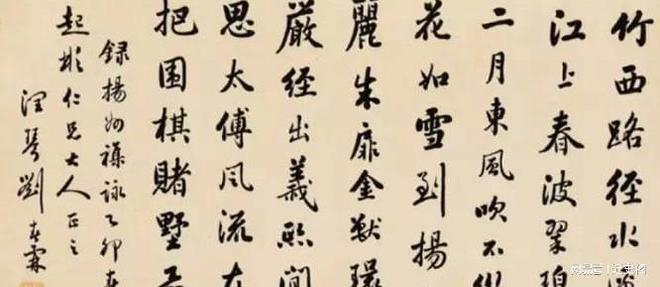 竹西路径水
江上春波翠
二月東風吹不
花如雪到揚
麗朱扉金獸環
嚴経出義熙間
思太傅風流在
把围棋賭墅
録揚州襍詠乙卯春
起彬仁兄大人正之
润琴劉春霖